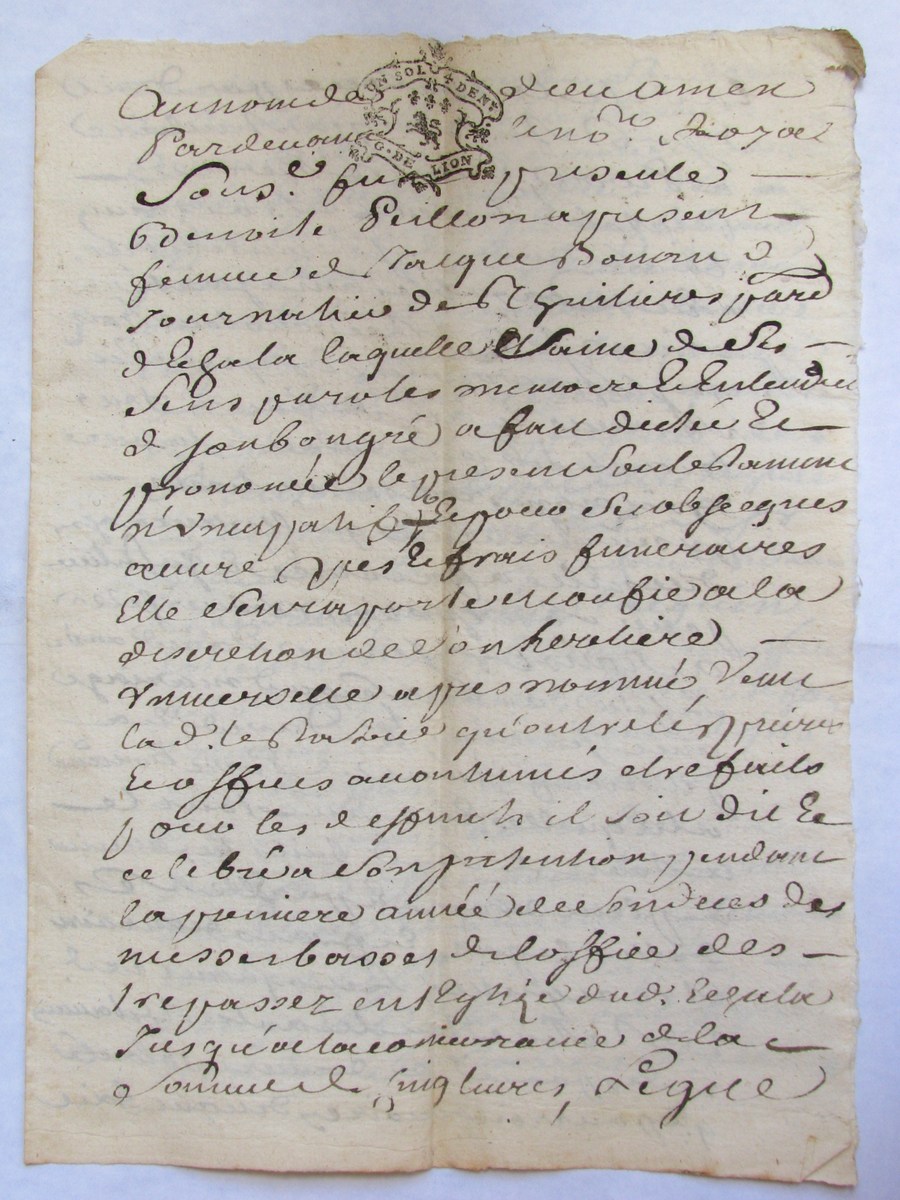 UN SOL 4 DEN.
G. DE LION
au nom de dieu amen
Pardevant le no.re Royal
Sous.é fut presente
Benoite Peillon a present
femme de Jacque
Journalier de St parr
d'Echala laquelle Saine de Ses
Sens parolles memoire Et Entendem
de son bon gré a fait dicté Et
prononcé le present Son testament
nuncupatif Et pour Ses obseques
œuvre pies Et frais funeraires
Elle Sen raporte Et confie a la
discretion de Son heritiere
Vniverselle apres nommé, Veut
la d.e testatrice qu'outre les prieres
Et offices accoutumés etre faits
pour les deffunts il Soit dit Et
celebré a Son intention pendant
la premiere année de Son deces des
messes basses de l'office des
trepassez en l'Eglise dud. Echala
Jusqu'a la concurrance de la
Somme de Cinq livres, Legue